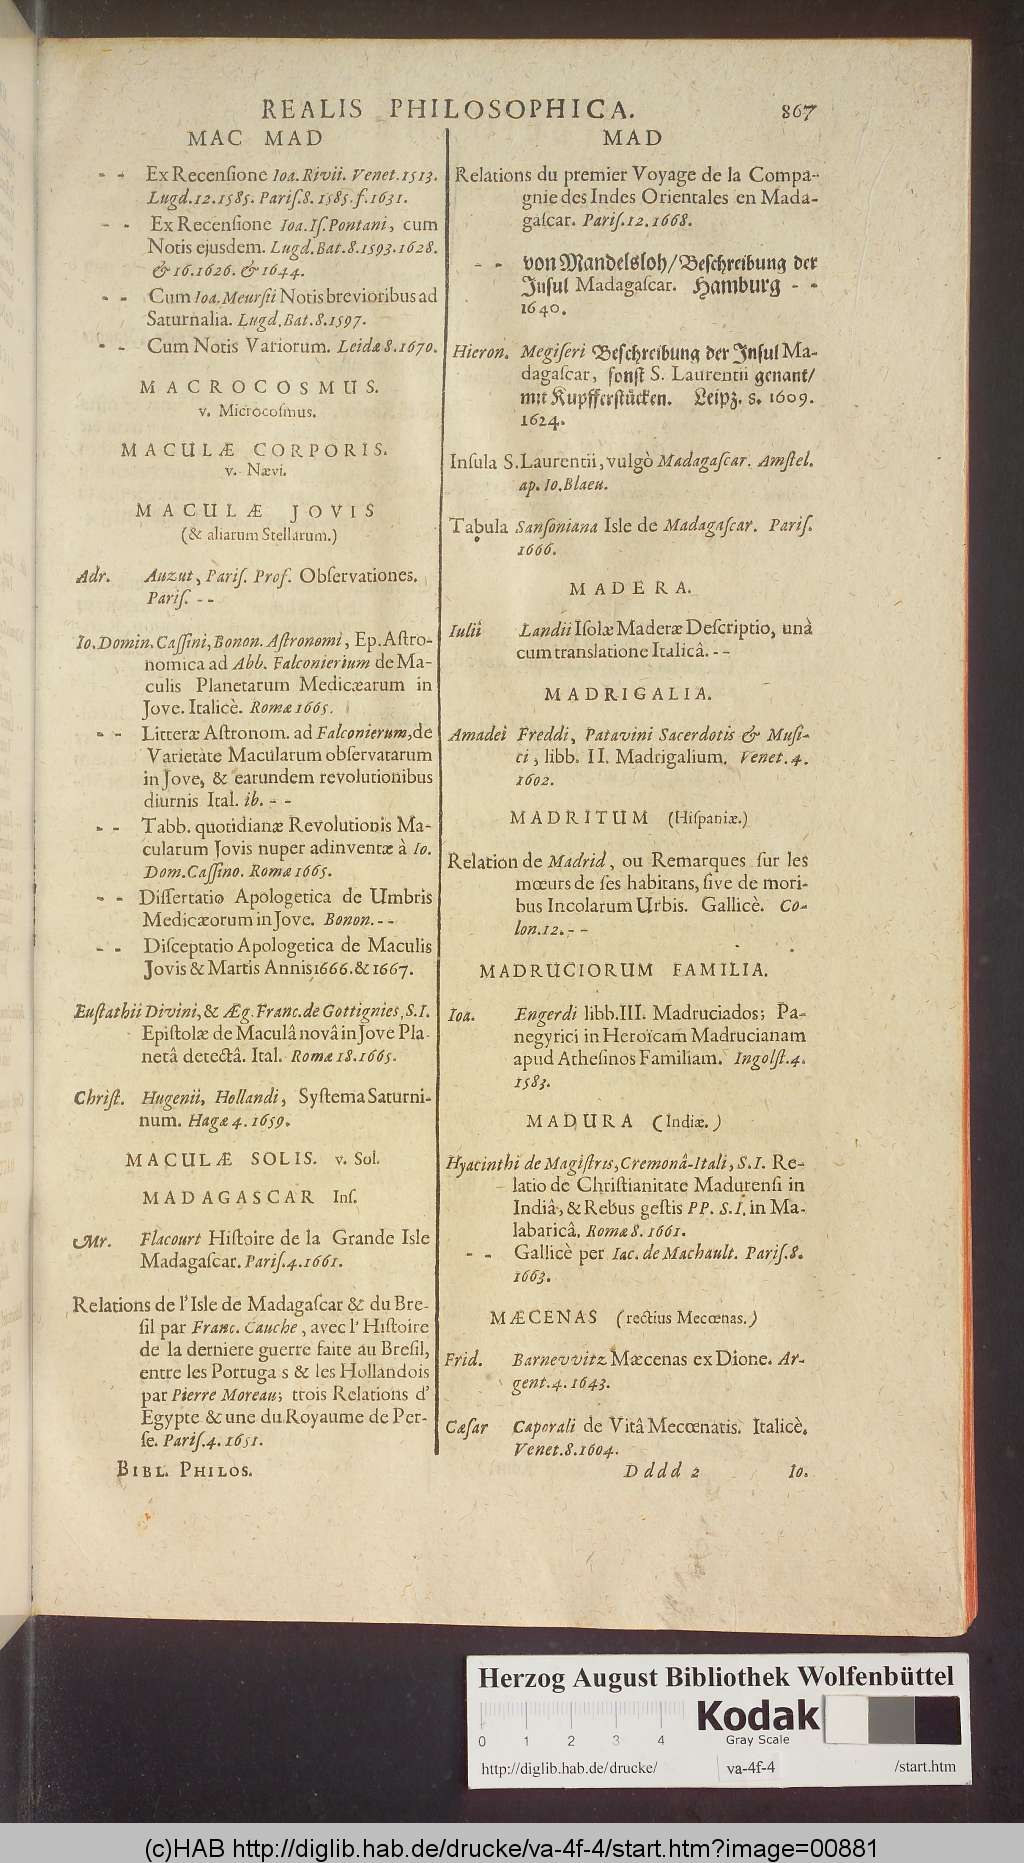 REALIS PHILOSOPHICA. 867
MAC MAD
- - Ex Recenſione Ioa. Rivii. Venet. 1513.
Lugd. 12. 1585. Pariſ. 8. 1585. f. 1631.
- - Ex Recenſione Ioa. Iſ. Pontani, cum
Notis ejusdem. Lugd. Bat. 8. 1593. 1628.
& 16. 1626. & 1644.
- - Cum Ioa. Meurſii Notis brevioribus ad
Saturnalia. Lugd. Bat. 8. 1597.
- - Cum Notis Variorum. Leidæ 8. 1670.
MACROCOSMUS.
v. Microcoſmus.
MACULÆ CORPORIS.
v. Nævi.
MACULÆ JOVIS
(& aliarum Stellarum.)
Adr. Auzut, Pariſ. Prof. Obſervationes.
Pariſ. - -
Io. Domin. Caſſini, Bonon. Aſtronomi, Ep. Aſtro-
nomica ad Abb. Falconierium de Ma-
culis Planetarum Medicæarum in
Jove. Italicè. Romæ 1665.
- - Litteræ Aſtronom. ad Falconierum, de
Varietate Macularum obſervatarum
in Jove, & earundem revolutionibus
diurnis Ital. ib. - -
- - Tabb. quotidianæ Revolutionis Ma-
cularum Jovis nuper adinventæ à Io.
Dom. Caſſino. Romæ 1665.
- - Diſſertatio Apologetica de Umbris
Medicæorum in Jove. Bonon. - -
- - Diſceptatio Apologetica de Maculis
Jovis & Martis Annis 1666. & 1667.
Euſtathii Divini, & Æg. Franc. de Gottignies, S. I.
Epiſtolæ de Maculâ novâ in Jove Pla-
netâ detectâ. Ital. Romæ 18. 1665.
Chriſt. Hugenii, Hollandi, Syſtema Saturni-
num. Hagæ 4. 1659.
MACULÆ SOLIS. v. Sol.
MADAGASCAR Inſ.
Mr. Flacourt Hiſtoire de la Grande Isle
Madagaſcar. Pariſ. 4. 1661.
Relations de l'Isle de Madagaſcar & du Bre-
ſil par Franc. Cauche, avec l'Hiſtoire
de la derniere guerre faite au Breſil,
entre les Portuga s & les Hollandois
par Pierre Moreau; trois Relations d'
Egypte & une du Royaume de Per-
ſe. Pariſ. 4. 1651.
BIBL. PHILOS.
MAD
Relations du premier Voyage de la Compa-
gnie des Indes Orientales en Mada-
gaſcar. Pariſ. 12. 1668.
- - von Mandelsloh/ Beſchreibung der
Inſul Madagaſcar. Hamburg - -
1640.
Hieron. Megiſeri Beſchreibung der Inſul Ma-
dagaſcar, ſonſt S. Laurentii genant/
mit Kupfferſtücken. Leipz. 8. 1609.
1624.
Inſula S. Laurentii, vulgò Madagaſcar. Amſtel.
ap. Io. Blaeu.
Tabula Sanſoniana Isle de Madagaſcar. Pariſ.
1666.
MADERA.
Iulii Landii Iſolæ Maderæ Deſcriptio, unà
cum translatione Italicâ. - -
MADRIGALIA.
Amadei Freddi, Patavini Sacerdotis & Muſi-
ci, libb. II. Madrigalium. Venet. 4.
1602.
MADRITUM (Hiſpaniæ.)
Relation de Madrid, ou Remarques ſur les
mœurs de ſes habitans, ſive de mori-
bus Incolarum Urbis. Gallicè. Co-
lon. 12. - -
MADRUCIORUM FAMILIA.
Ioa. Engerdi libb. III. Madruciados; Pa-
negyrici in Heroïcam Madrucianam
apud Atheſinos Familiam. Ingolſt. 4.
1583.
MADURA (Indiæ.)
Hyacinthi de Magiſtris, Cremonâ-Itali, S. I. Re-
latio de Chriſtianitate Madurenſi in
Indiâ, & Rebus geſtis PP. S. I. in Ma-
labaricâ. Romæ 8. 1661.
- - Gallicè per Iac. de Machault. Pariſ. 8.
1663.
MÆCENAS (rectius Mecœnas.)
Frid. Barnevvitz Mæcenas ex Dione. Ar-
gent. 4. 1643.
Cæſar Caporali de Vitâ Mecœnatis. Italicè.
Venet. 8. 1604.
Dddd 2 Io.
Herzog August Bibliothek Wolfenbüttel
0 1 2 3 4
Kodak
Gray Scale
http://diglib.hab.de/drucke/ va-4f-4 /start.htm
(c)HAB http://diglib.hab.de/drucke/va-4f-4/start.htm?image=00881